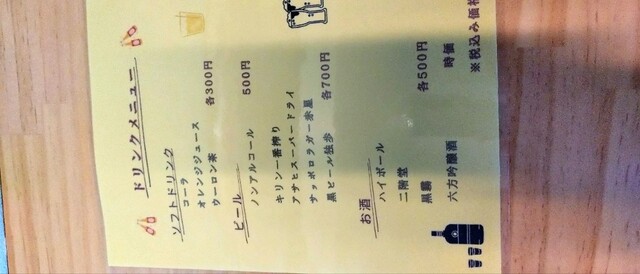 ドリンクメニュー
ソフトドリンク
コーラ
オレンジジュース
ウーロン茶 各300円
ビール
ノンアルコール 500円
キリン一番搾り
アサヒスーパードライ
サッポロラガー赤星
黒ビール独歩 各700円
お酒
ハイボール
二階堂
黒霧 各500円
六方吟醸酒 時価
※税込み価格